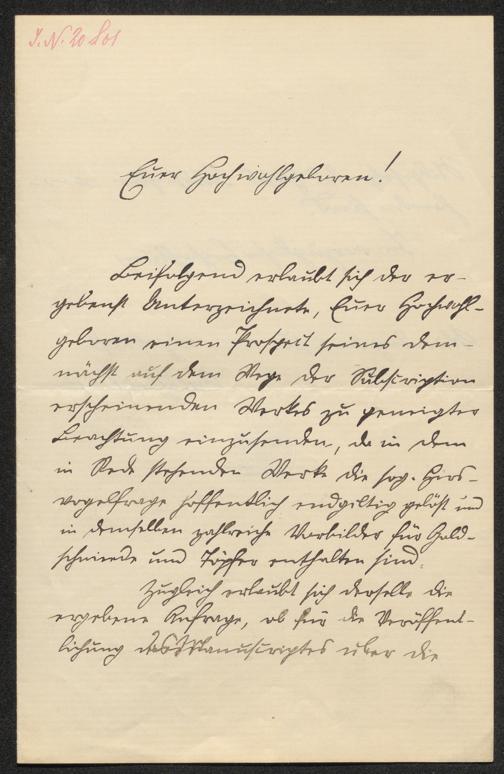 J. N. 20801
Euer Hochwohlgeboren!
Beifolgend erlaubt sich der er-
gebenst Unterzeichnete, Euer Hochwohl-
geboren einen Prospect seines dem-
nächst auf dem Wege der Subscription
erscheinenden Werkes zu geneigter
Beachtung einzusenden, da in dem
in Rede stehenden Werke die sog. Hirs-
vogelfrage hoffentlich endgiltig gelöst und
in demselben zahlreiche Vorbilder für Gold-
schmiede und Töpfer enthalten sind.
Zugleich erlaubt sich derselbe die
ergebene Anfrage, ob für die Veröffent-
lichung des Manuscriptes über die